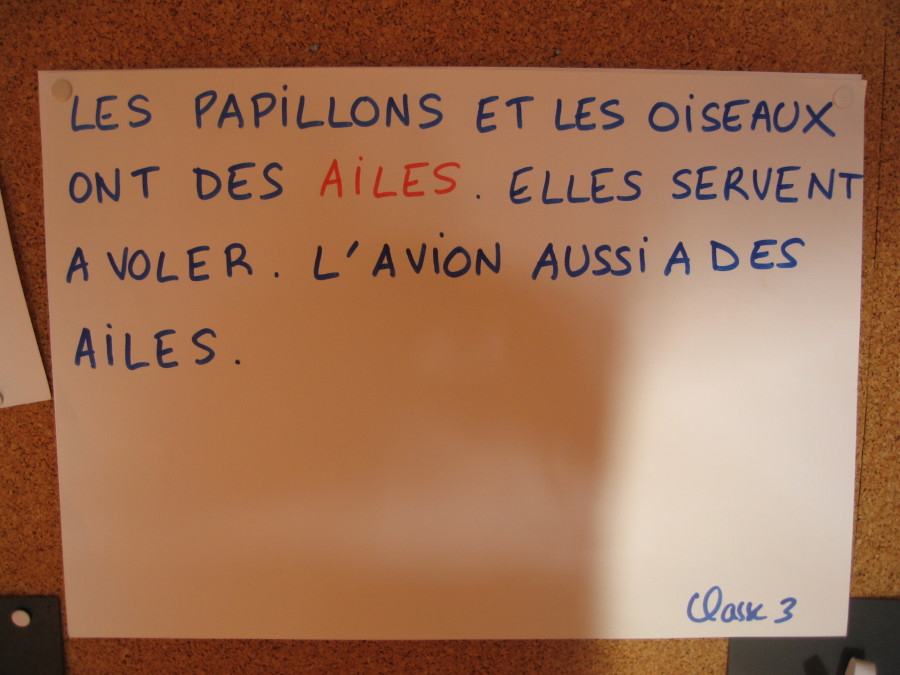 LES PAPILLONS ET LES OISEAUX
ONT DES AILES. ELLES SERVENT
A VOLER. L'AVION AUSSI A DES
AILES.
Classe 3